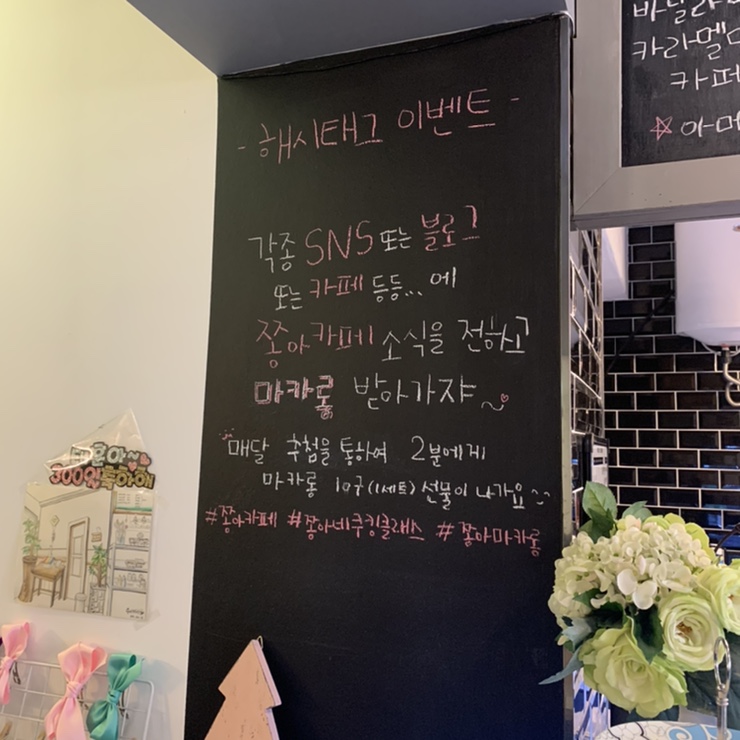 - 해시태그 이벤트 -
각종 SNS 또는 블로그
또는 카페 등등... 에
쫑아카페 소식을 전하고
마카롱 받아가쟈~♡
매달 추첨을 통하여 2분에게
마카롱 10구(1세트) 선물이 나가요
#쫑아카페 #쫑아네쿠킹클래스 #쫑아마카롱
카페
300일